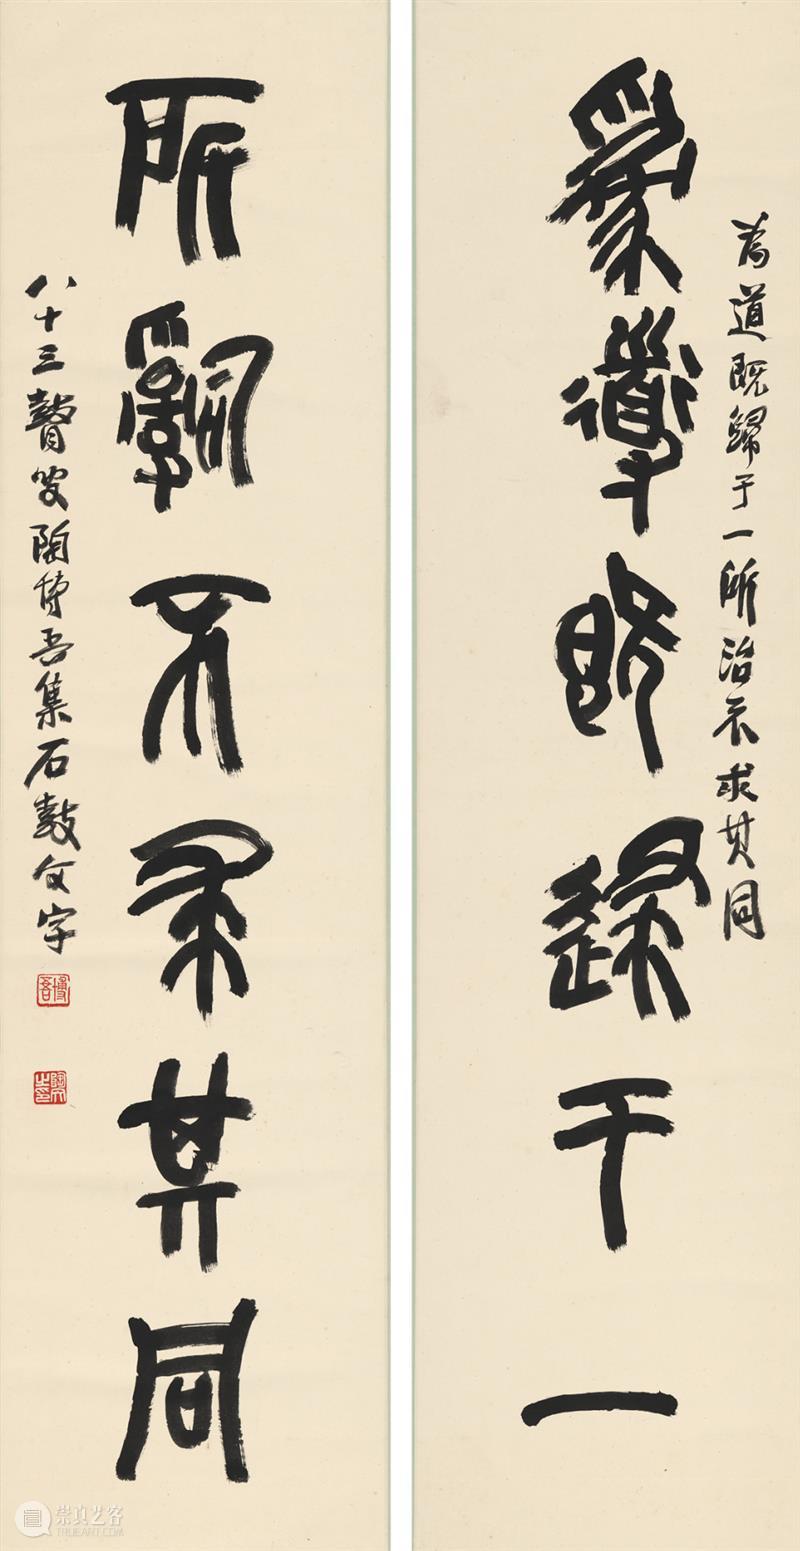 為道既歸于一所治不求其同
為道既歸于一
所治不求其同
八十三瞽叟陶博吾集石鼓文字
博吾
崇真艺客
TRUEART.COM